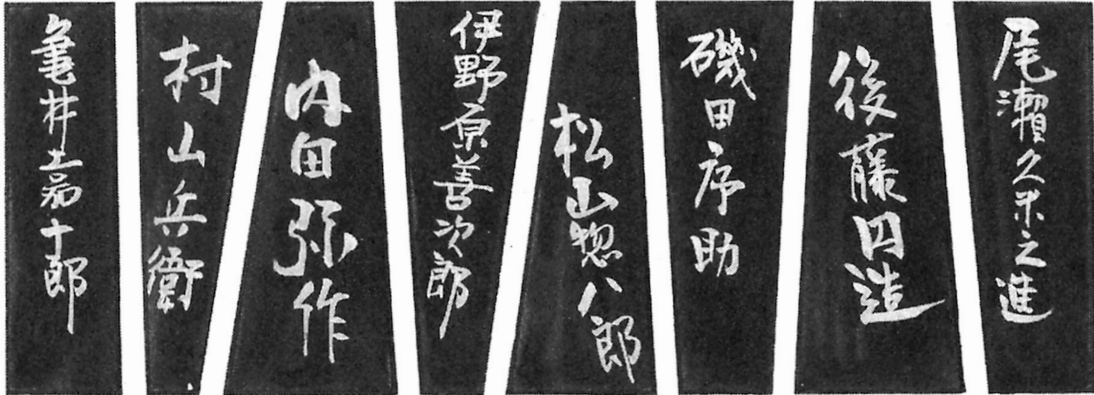 尾瀬久米之進
後藤円造
磯田序助
松山惣八郎
伊野原善次郎
内田弥作
村山兵衛
井嘉十郎